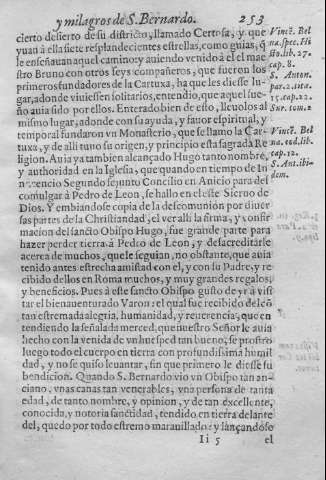 y milagros de S. Bernardo. 253
cierto desierto de su districto, llamado Certosa, y que
yuan à ella siete resplandecientes estrellas, como guias, q̃
le enseñauan aquel camino: y auiendo venido à el el mae
stro Bruno con otros seys compañeros, que fueron los
primeros fundadores de la Cartuxa, ha que les diesse lu-
gar, adonde viuiessen solitarios, entendio, que aquel sue-
ño auia sido por ellos. Enterado bien de esto, lleuolos al
mismo lugar, adonde con su ayuda, y fauor espiritual, y
temporal fundaron vn Monasterio, que se llamo la Car-
tuxa, y de alli tuuo su origen, y principio esta sagrada Re
ligion. Auia ya tambien alcançado Hugo tanto nombre,
y authoridad en la Iglesia, que quando en tiempo de In
nocencio Segundo se junto Concilio en Anicio para des
comulgar à Pedro de Leon, se hallo en el este Sieruo de
Dios. Y embiandose copia de la descomunion por diuer
sas partes de la Christiandad, el ver alli la firma, y confir
macion del sancto Obispo Hugo, fue grande parte para
hazer perder tierra à Pedro de Leon, y desacreditarle
acerca de muchos, que le seguian, no obstante, que auia
tenido antes estrecha amistad con el, y con su Padre, y re
cibido dellos en Roma muchos, y muy grandes regalos,
y beneficios. Pues à este sancto Obispo gustò de yr à visi
tar el bienauenturado Varon: el qual fue recibido del cõ
tan estremada alegria, humanidad, y reuerencia, que en
tendiendo la señalada merced, que nuestro Señor le auia
hecho con la venida de vn huesped tan bueno, se prostro
luego todo el cuerpo en tierra con profundissima humil
dad, y no se quiso leuantar, sin que primero le diesse su
bendicion. Quando S. Bernardo vio vn Obispo tan an-
ciano, vnas canas tan venerables, vna persona de tanta
edad, de tanto nombre, y opinion, y de tan excelente,
conocida, y notoria sanctidad, tendido en tierra delante
del, quedo por todo estremo marauillado: y lançandose
Ii 5 el
Vincẽ. Bel
na. spec. Hi
sto. lib. 27.
cap. 8.
S. Anton.
par. 2. sta.
15. cap. 22.
Sur. tom. 2
Vincẽ. Bel
na. eod. lib.
cap. 12.
S. Ant. ibi-
dem.